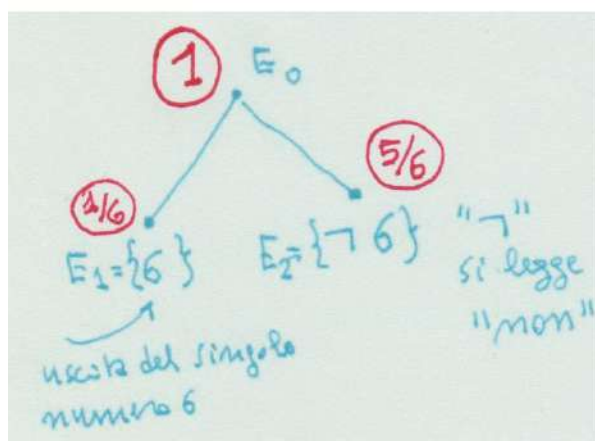 1 E₀
1/6 5/6
E₁={6} E₂={¬ 6} "¬"
si legge
"non"
uscita del singolo
numero 6